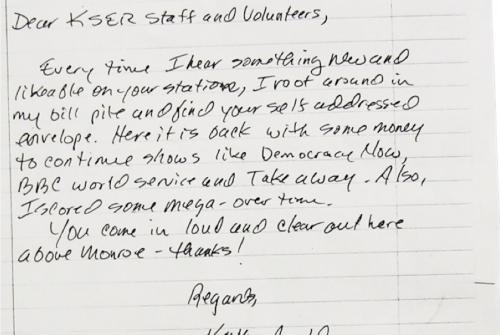 Dear KSER Staff and Volunteers,
Every time I hear something new and
likeable on your station, I root around in
my bill pile and find your self addressed
envelope. Here it is back with some money
to continue shows like Democracy Now,
BBC world service and Take away. Also,
I scored some mega-over time.
You come in loud and clear out here
above Monroe - thanks!
Regards,